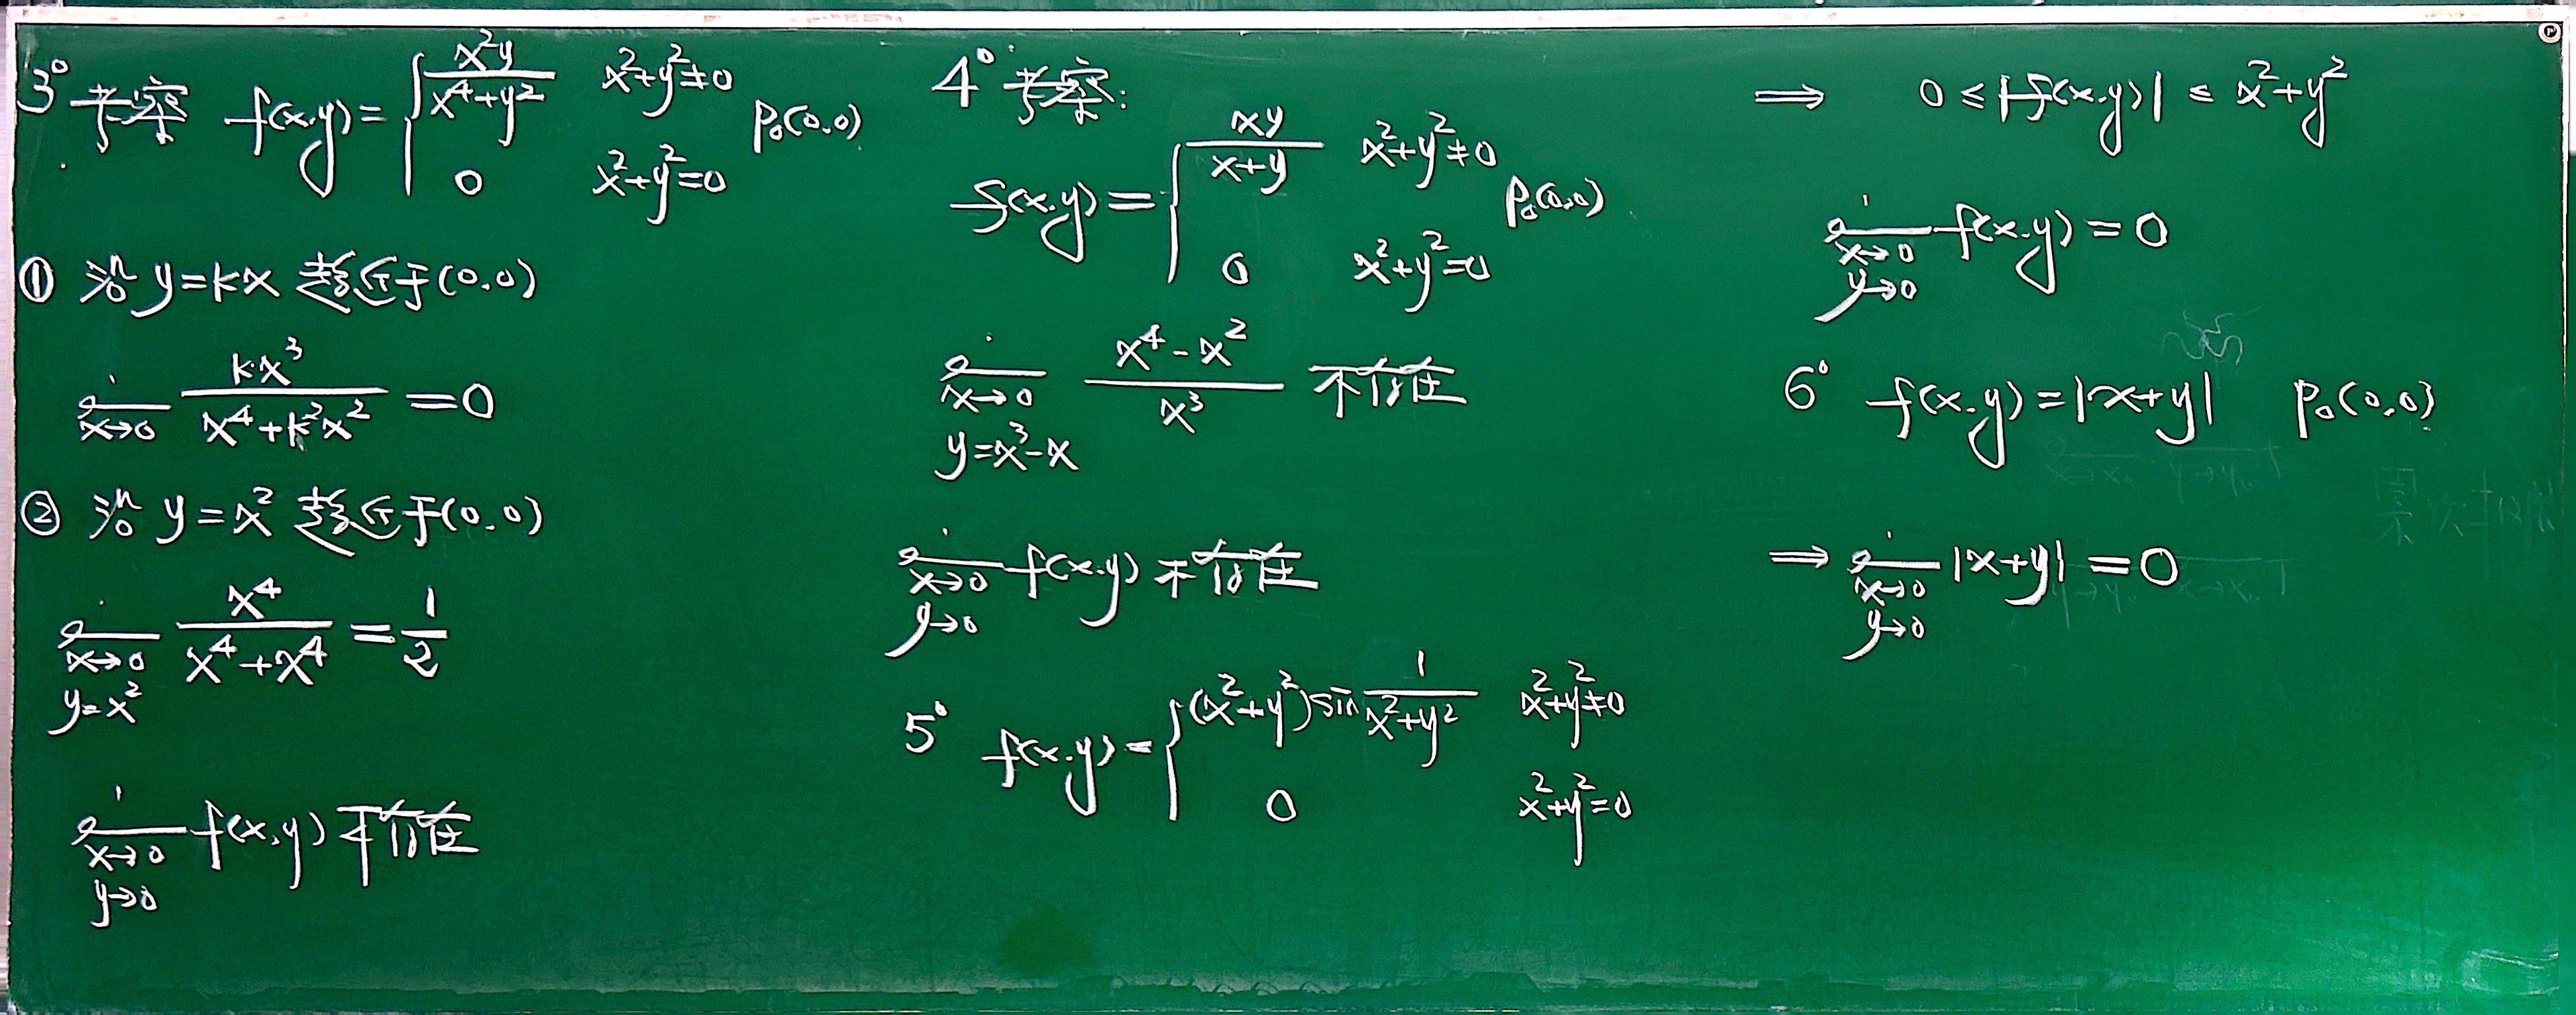 3° 考察 f(x,y)= { x²y/(x⁴+y²) x²+y²≠0
0 x²+y²=0 P₀(0,0)
① 沿 y=kx 趋近于(0,0)
lim x→0 kx³/(x⁴+k²x²) =0
② 沿 y=x² 趋近于(0,0)
lim x→0 y=x² x⁴/(x⁴+x⁴) = 1/2
lim x→0 y→0 f(x,y) 不存在
4° 考察:
f(x,y)= { xy/(x+y) x²+y²≠0
0 x²+y²=0 P₀(0,0)
lim x→0 y=x³-x (x⁴-x²)/x³ 不存在
lim x→0 y→0 f(x,y) 不存在
5° f(x,y)= { (x²+y²)sin 1/(x²+y²) x²+y²≠0
0 x²+y²=0
⟹ 0≤|f(x,y)|≤x²+y²
lim x→0 y→0 f(x,y)=0
6° f(x,y)=|x+y| P₀(0,0)
⟹ lim x→0 y→0 |x+y|=0